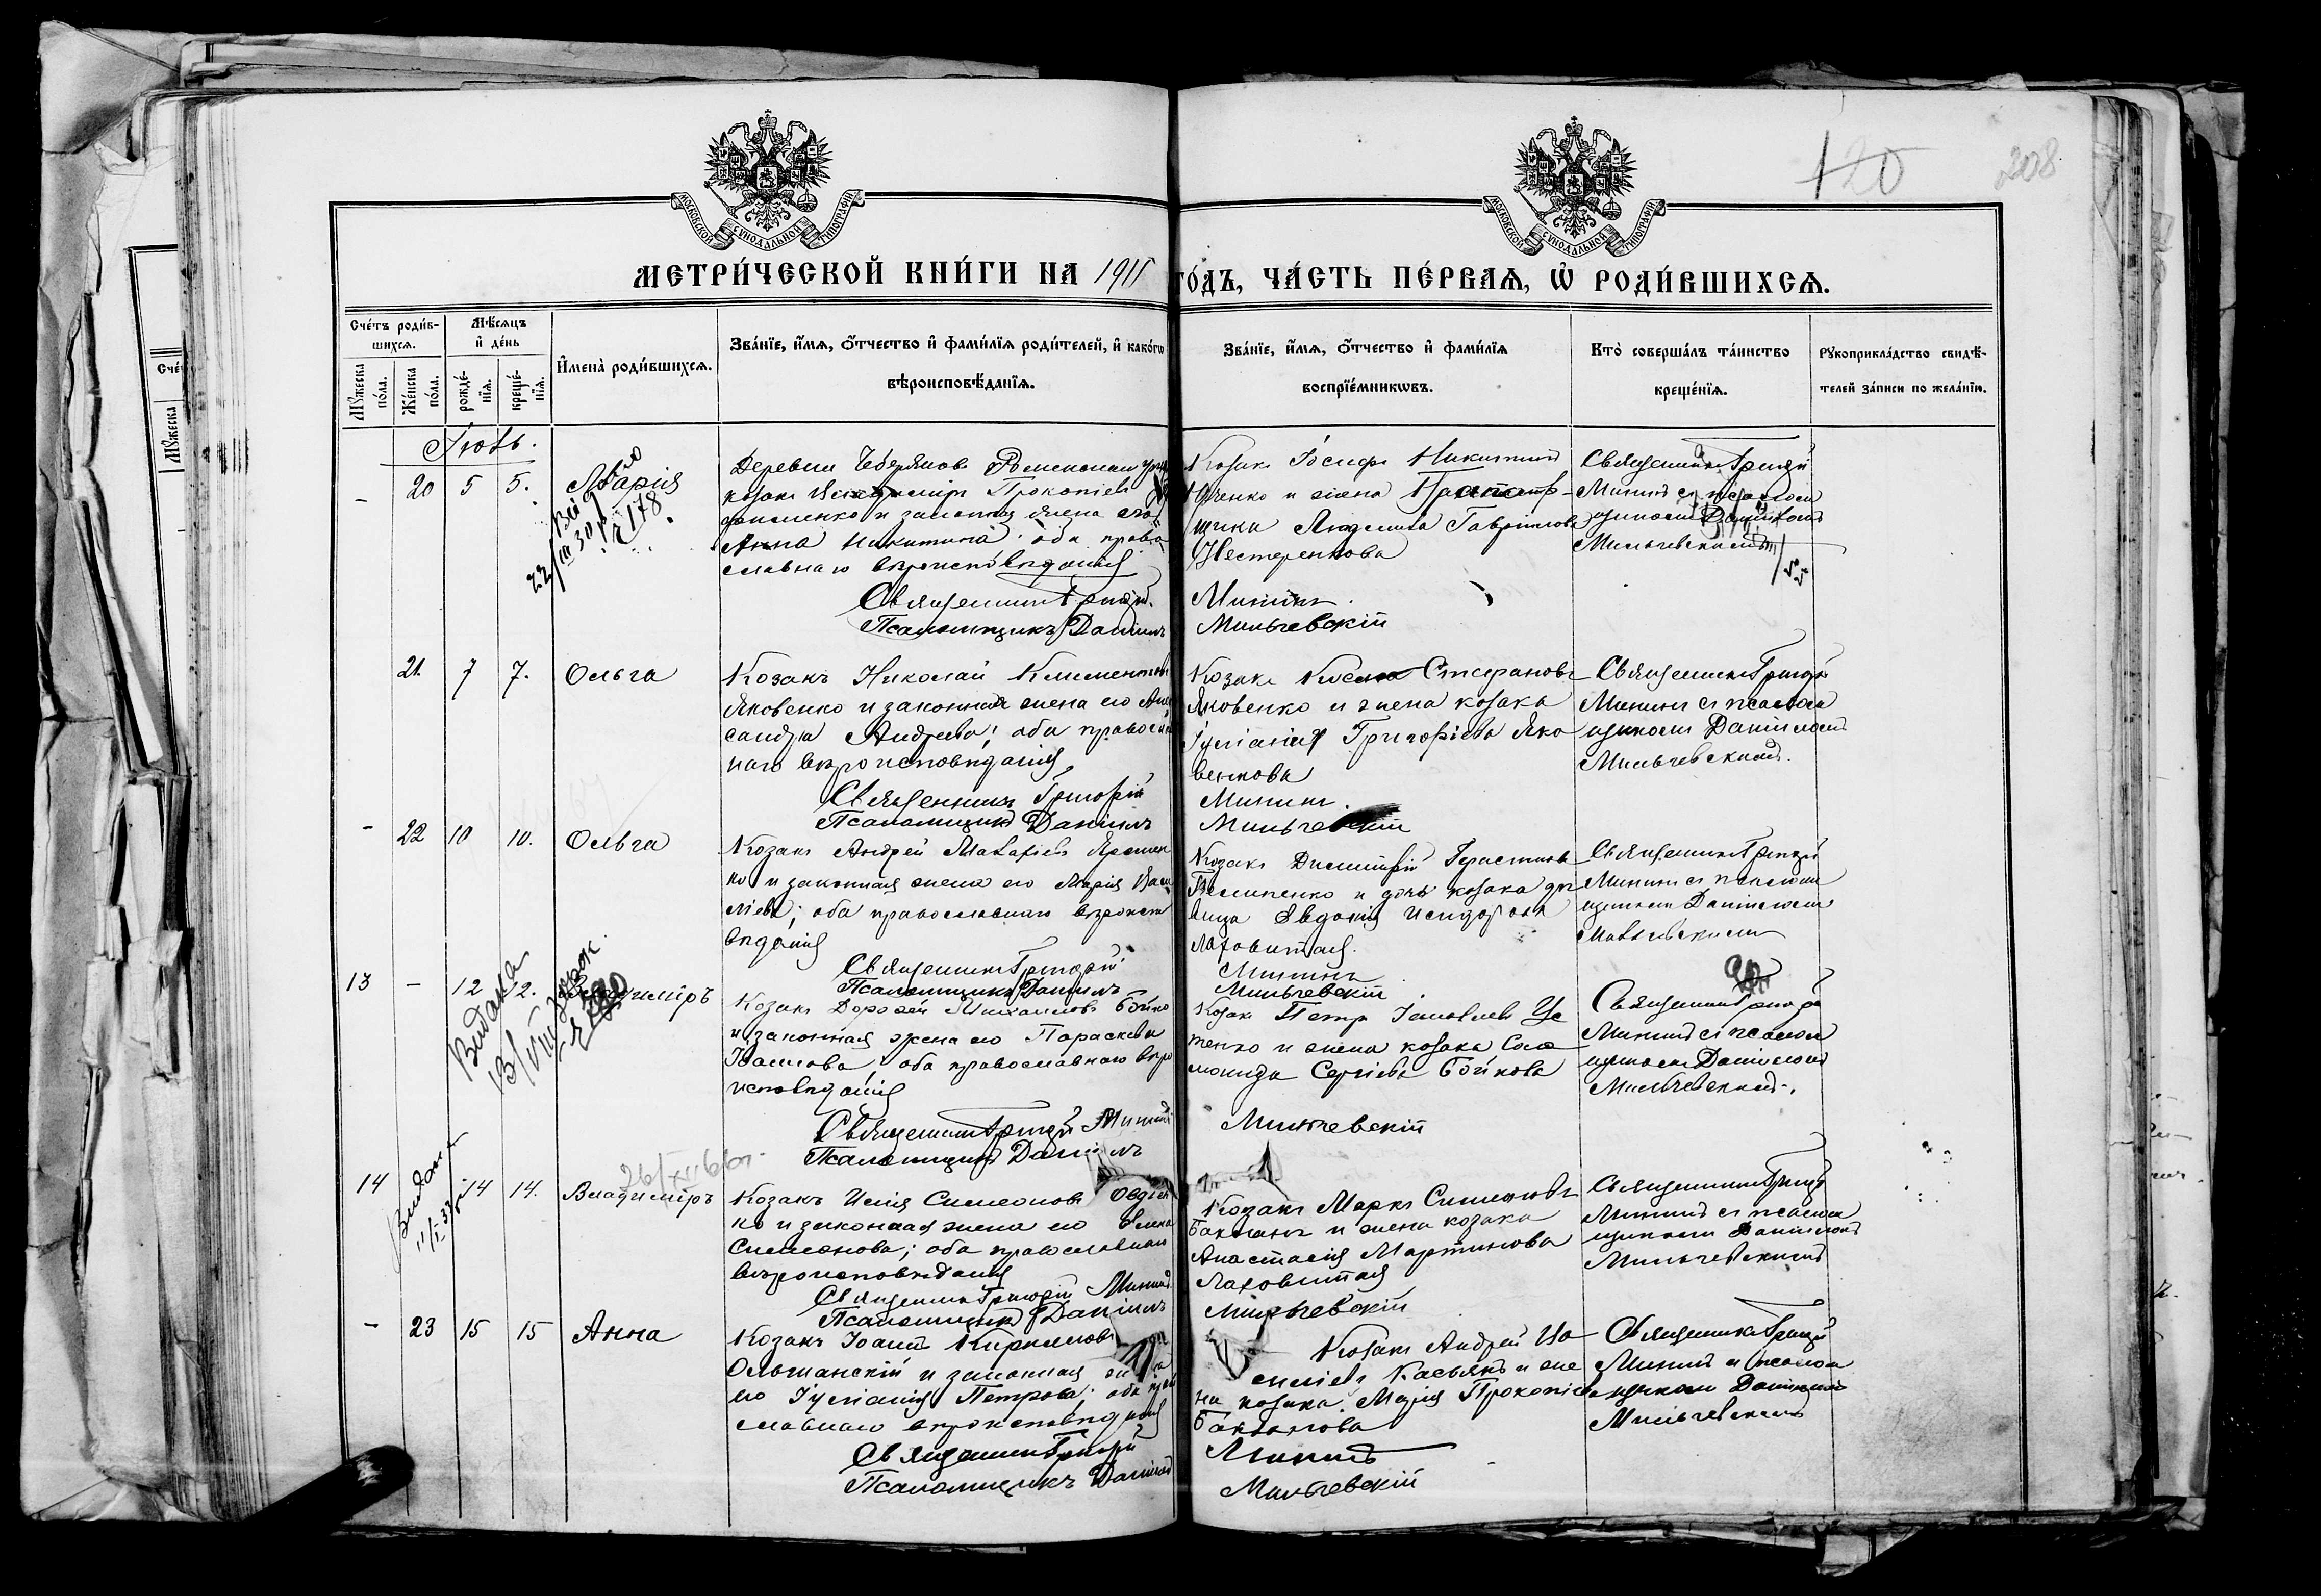 120
208
МОСКОВСКОЙ СѴНОДАЛЬНОЙ ТИПОГРАФІИ
МОСКОВСКОЙ СѴНОДАЛЬНОЙ ТИПОГРАФІИ
МЕТРИ́ЧЕСКОЙ КНИ́ГИ НА 1911 ГО́ДЪ, ЧА́СТЬ ПЕ́РВАѦ, Ѡ҆ РОДИ́ВШИХСѦ.
Сче́тъ роди́в-
шихсѧ.
Мѣ́сѧцъ
и҆ де́нь
Мꙋ́жеска по́ла.
Же́нска по́ла.
рожде́-
нїѧ.
креще́-
нїѧ.
И҆мена̀ роди́вшихсѧ.
Зва́нїе, и҆́мѧ, ѻ҆́тчество и҆ фами́лїѧ роди́телей, и҆ како́гѡ
вѣроисповѣ́данїѧ.
Зва́нїе, и҆́мѧ, ѻ҆́тчество и҆ фами́лїѧ
воспрїе́мникѡвъ.
Кто̀ соверша́лъ та́инство
креще́нїѧ.
Рꙋкоприкла́дство свидѣ́-
телей за́писи по жела́нїю.
Іюль.
20 5 5. Марія
Деревни
козакъ Прокопіевъ
и законная жена его
Анна Никитина; оба право
славнаго вѣроисповѣданія
Священникъ Григорій
Псаломщикъ Даніилъ
Козакъ Іосифъ Никитинъ
и жена
Людмила Гаврилова
Нестеренкова
Мининъ.
Мильчевскій
Священникъ Григорій
Мининъ съ псалом
щикомъ Даніиломъ
Мильчевскимъ
21. 7 7. Ольга
Козакъ Николай Климентовъ
Яковенко и законная жена его Алек
сандра Андреева; оба православ
наго вѣроисповѣданія,
Священникъ Григорій
Псаломщикъ Даніилъ
Козакъ Стефановъ
Яковенко и жена козака
Іуліанія Григорьева Яко
венкова
Мининъ.
Мильчевскій
Священникъ Григорій
Мининъ съ псалом
щикомъ Даніиломъ
Мильчевскимъ.
- 22 10 10. Ольга
Козакъ Андрей
ко и законная жена его Марія Васи
ліева; оба православнаго вѣроиспо
вѣданія
Священникъ Григорій
Псаломщикъ Даніилъ
Козакъ Димитрій
и дочь козака дѣ
вица Евдокія Исидорова
Лаховитая.
Мининъ
Мильчевскій
Священникъ Григорій
Мининъ съ псалом
щикомъ Даніиломъ
Мильчевскимъ
13 - 12 12. Владиміръ
Видана
13/VIII
Козакъ Дороѳей Михаиловъ Бойко
и законная жена его Параскева
Иванова, оба православнаго вѣро
исповѣданія
Священникъ Григорій Мининъ
Псаломщикъ Даніилъ
Козакъ Петръ
тенко и жена козака Соло
монида Сергіева Бойкова
Мильчевскій
Священникъ Григорій
Мининъ съ псалом
щикомъ Даніиломъ
Мильчевскимъ.
14 14 14. Владиміръ
Видана
Козакъ Илія Симеоновъ Овдіен
ко и законная жена его Елена
Симеонова; оба православнаго
вѣроисповѣданія
Священникъ Григорій Мининъ
Псаломщикъ Даніилъ
Козакъ Маркъ Симеоновъ
Бакланъ и жена козака
Анастасія Мартинова
Лаховитая
Мильчевскій
Священникъ Григорій
Мининъ съ псалом
щикомъ Даніиломъ
Мильчевскимъ
- 23 15 15 Анна
Козакъ Іоаннъ Кирилловъ
Ольшанскій и законная жена
его Іуліанія Петрова; оба право
славнаго вѣроисповѣданія
Священникъ Григорій
Псаломщикъ Даніилъ
Козакъ Андрей Ва
силіевъ Касьянъ и же
на козака Марія Прокопіева
Бакланова
Мининъ
Мильчевскій
Священникъ Григорій
Мининъ и псалом
щикомъ Даніиломъ
Мильчевскимъ